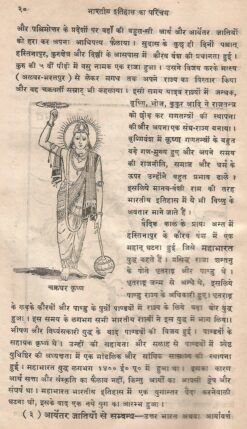 २० भारतीय इतिहास का परिचय
और पश्चिमोत्तर के प्रदेशों पर वहाँ की बहुत-सी आर्य और आर्येतर जातियों
को हरा कर अपना आधिपत्य फैलाया। सुदास के कुछ ही दिनों पश्चात्
हस्तिनापुर, कुरुक्षेत्र और दिल्ली के आसपास में कौरव वंश की प्रधानता हुई।
कुरु की ५ वीं पीढ़ी में वसु नामक एक राजा हुआ। उसने विजय करके मत्स्य
(अलवर-भरतपुर) से लेकर मगध तक अपने राज्य का विस्तार किया
और वह चक्रवर्ती सम्राट् भी कहलाया। इस समय यादव राज्यों में अन्धक,
वृष्णि, भोज, कुकुर आदि ने राजतन्त्र
को छोड़ कर गणतन्त्रों की स्थापना
की और अपना एक संघ-राज्य बनाया।
वृष्णिवंश में कृष्ण गणतन्त्रों के बहुत
बड़े गण-मुख्य हुए और अपने समय
की राजनीति, समाज और धर्म के
ऊपर उन्होंने बहुत प्रभाव डाला।
इसलिये मानव-वंशी राम की तरह
भारतीय इतिहास में ये भी विष्णु के
अवतार माने जाते हैं।
वैदिक काल के प्रायः अन्त में
हस्तिनापुर के कौरव वंश में एक
महान् घटना हुई, जिसे महाभारत
युद्ध कहते हैं। प्रसिद्ध राजा शान्तनु
के पोते धृतराष्ट्र और पाण्डु थे।
धृतराष्ट्र जन्म से अन्धे थे, इसलिये
पाण्डु राज्य के अधिकारी हुए। धृतराष्ट्र
चक्रधर कृष्ण
के लड़के कौरवों और पाण्डु के पुत्रों पाण्डवों में राज्य के लिये युद्ध
हुआ। इस समय के लगभग सभी भारतीय राज्यों ने इस युद्ध में भाग लिया।
भीषण और विध्वंसकारी युद्ध के बाद पाण्डवों की विजय हुई। पाण्डवों के
सहायक कृष्ण थे। उन्हीं की सहायता और सलाह से पाण्डवों में ज्येष्ठ
युधिष्ठिर की अध्यक्षता में एक साम्राज्य की स्थापना
हुई। महाभारत युद्ध लगभग १४०० ई० पू० में हुआ था। इसका कारण
आर्य सत्ता और संस्कृति का फैलाव नहीं, किन्तु आर्यों का आपसी द्वेष और
संघर्ष था। महाभारत भारतीय इतिहास में एक युगान्तर पैदा करनेवाली
घटना थी, इसके बाद एक नये युग का आरम्भ हुआ।
(२) आर्येतर जातियों से सम्बन्ध—उत्तर भारत अथवा आर्यावर्त